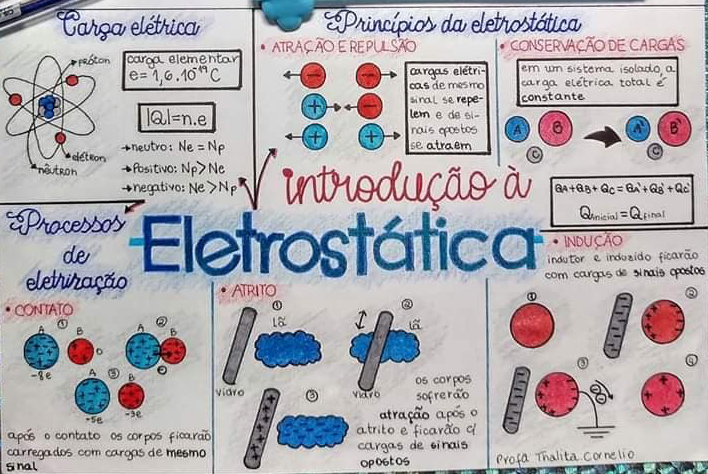 Carga elétrica
próton
elétron
nêutron
carga elementar
e= 1,6.10⁻¹⁹ C
|Q|=n.e
→neutro: Ne = Np
→Positivo: Np>Ne
→negativo: Ne>Np
Princípios da eletrostática
• ATRAÇÃO E REPULSÃO
cargas elétri-
cas de mesmo
sinal se repe-
lem e de si-
nais opostos
se atraem
• CONSERVAÇÃO DE CARGAS
em um sistema isolado, a
carga elétrica total é
constante
A B C A' B' C
QA+QB+QC=QA'+QB'+QC'
Qinicial=Qfinal
introdução à
Eletrostática
Processos
de
eletrização
• CONTATO
① ②
A B A B
-8e 0
③
A B
-5e -3e
após o contato os corpos ficarão
carregados com cargas de mesmo
sinal
• ATRITO
① ②
lã lã
vidro vidro
③
os corpos
sofrerão
atração após o
atrito e ficarão c/
cargas de sinais
opostos
• INDUÇÃO
indutor e induzido ficarão
com cargas de sinais opostos
① ②
③ ④
Profa Thalita Cornelio